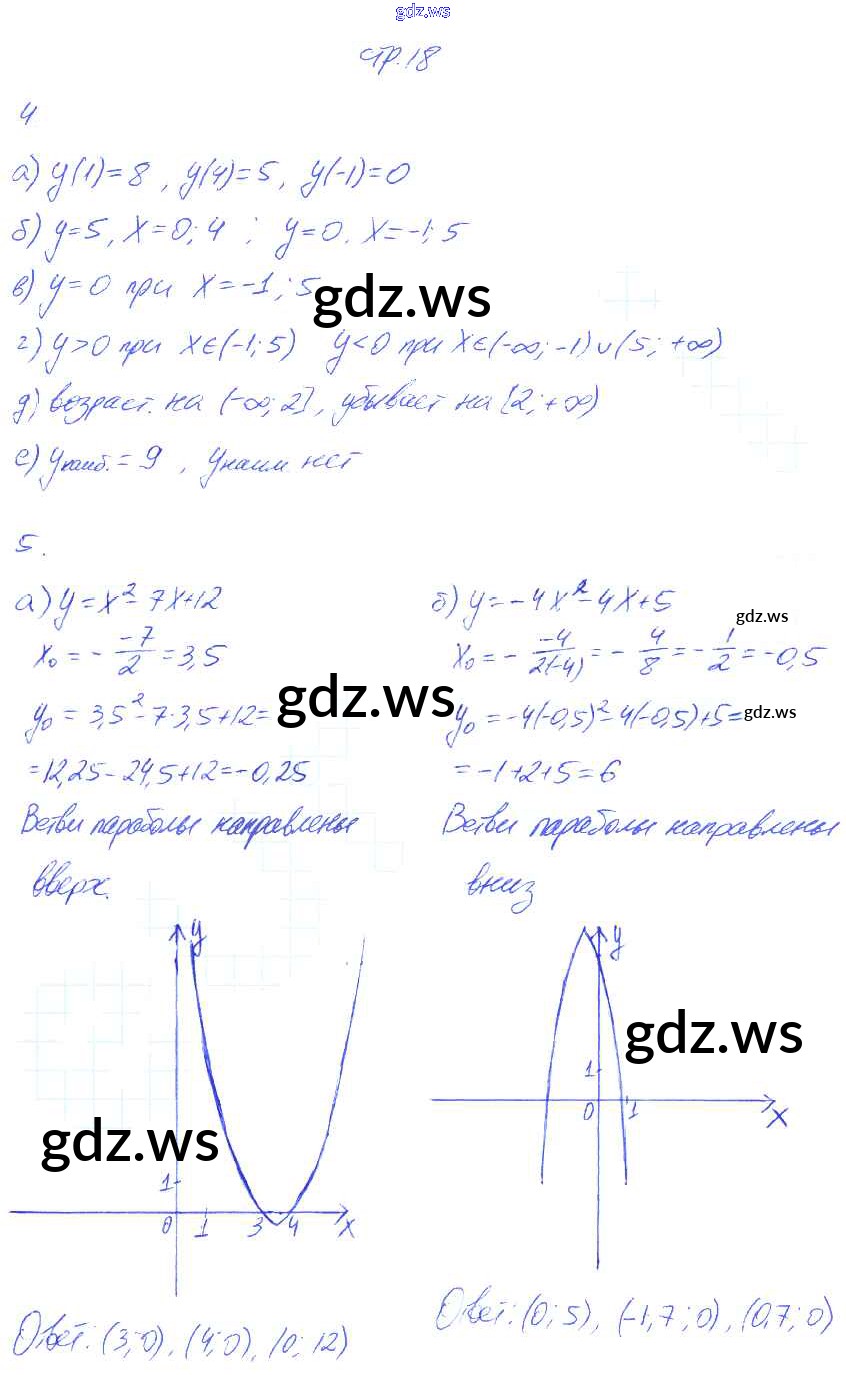 gdz.ws
стр.18
4
а) y(1)=8, y(4)=5, y(-1)=0
б) y=5, x=0; 4 ; y=0. x=-1; 5
в) y=0 при x=-1; 5
gdz.ws
г) y>0 при x∈(-1; 5) y<0 при x∈(-∞; -1)∪(5; +∞)
д) возраст. на (-∞; 2], убывает на [2; +∞)
е) yнаиб.=9, yнаим нет
5.
а) y=x²-7x+12
x₀=-\frac{-7}{2}=3,5
y₀=3,5²-7·3,5+12=
gdz.ws
=12,25-24,5+12=-0,25
Ветви параболы направлены
вверх.
y
1
0 1 3 4 x
gdz.ws
Ответ: (3; 0), (4; 0), (0; 12)
б) y=-4x²-4x+5
gdz.ws
x₀=-\frac{-4}{2(-4)}=-\frac{4}{8}=-\frac{1}{2}=-0,5
y₀=-4(-0,5)²-4(-0,5)+5=
gdz.ws
=-1+2+5=6
Ветви параболы направлены
вниз
y
gdz.ws
1
0 1 x
Ответ: (0; 5), (-1,7; 0), (0,7; 0)